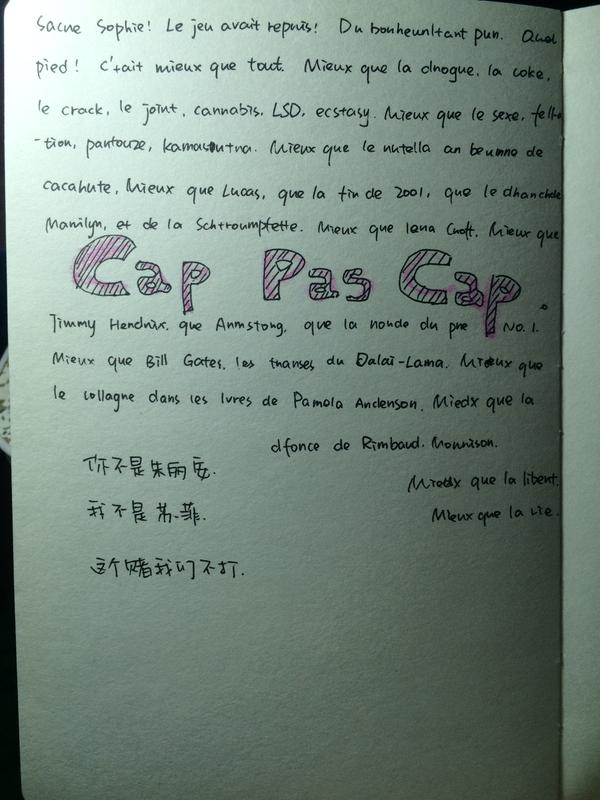 Sacne Sophie! Le jeu avait repuis! Du bonheunltant pun. Quel
pied! C'tait mieux que tout. Mieux que la dnogue, la coke,
le crack, le joint, cannabis, LSD, ecstasy. Mieux que le sexe, fella
-tion, pantouze, kamasutna. Mieux que le nutella an beunne de
cacahute, Mieux que Lucas, que la fin de 2001, que le dhanchde
Manilyn, et de la Schtroumpfette. Mieux que lana Cnoft, Mieux que
Cap Pas Cap
Jimmy Hendnix, que Anmstong, que la nonde du pne No. 1.
Mieux que Bill Gates, les tnanses du Dalaï-Lama. Mieux que
le collagne dans les lvres de Pamola Andenson. Miedx que la
dfonce de Rimbaud. Monnison.
你不是朱丽安.
Miedx que la libent.
我不是苏菲.
Mieux que la vie.
这个赌我们不打.